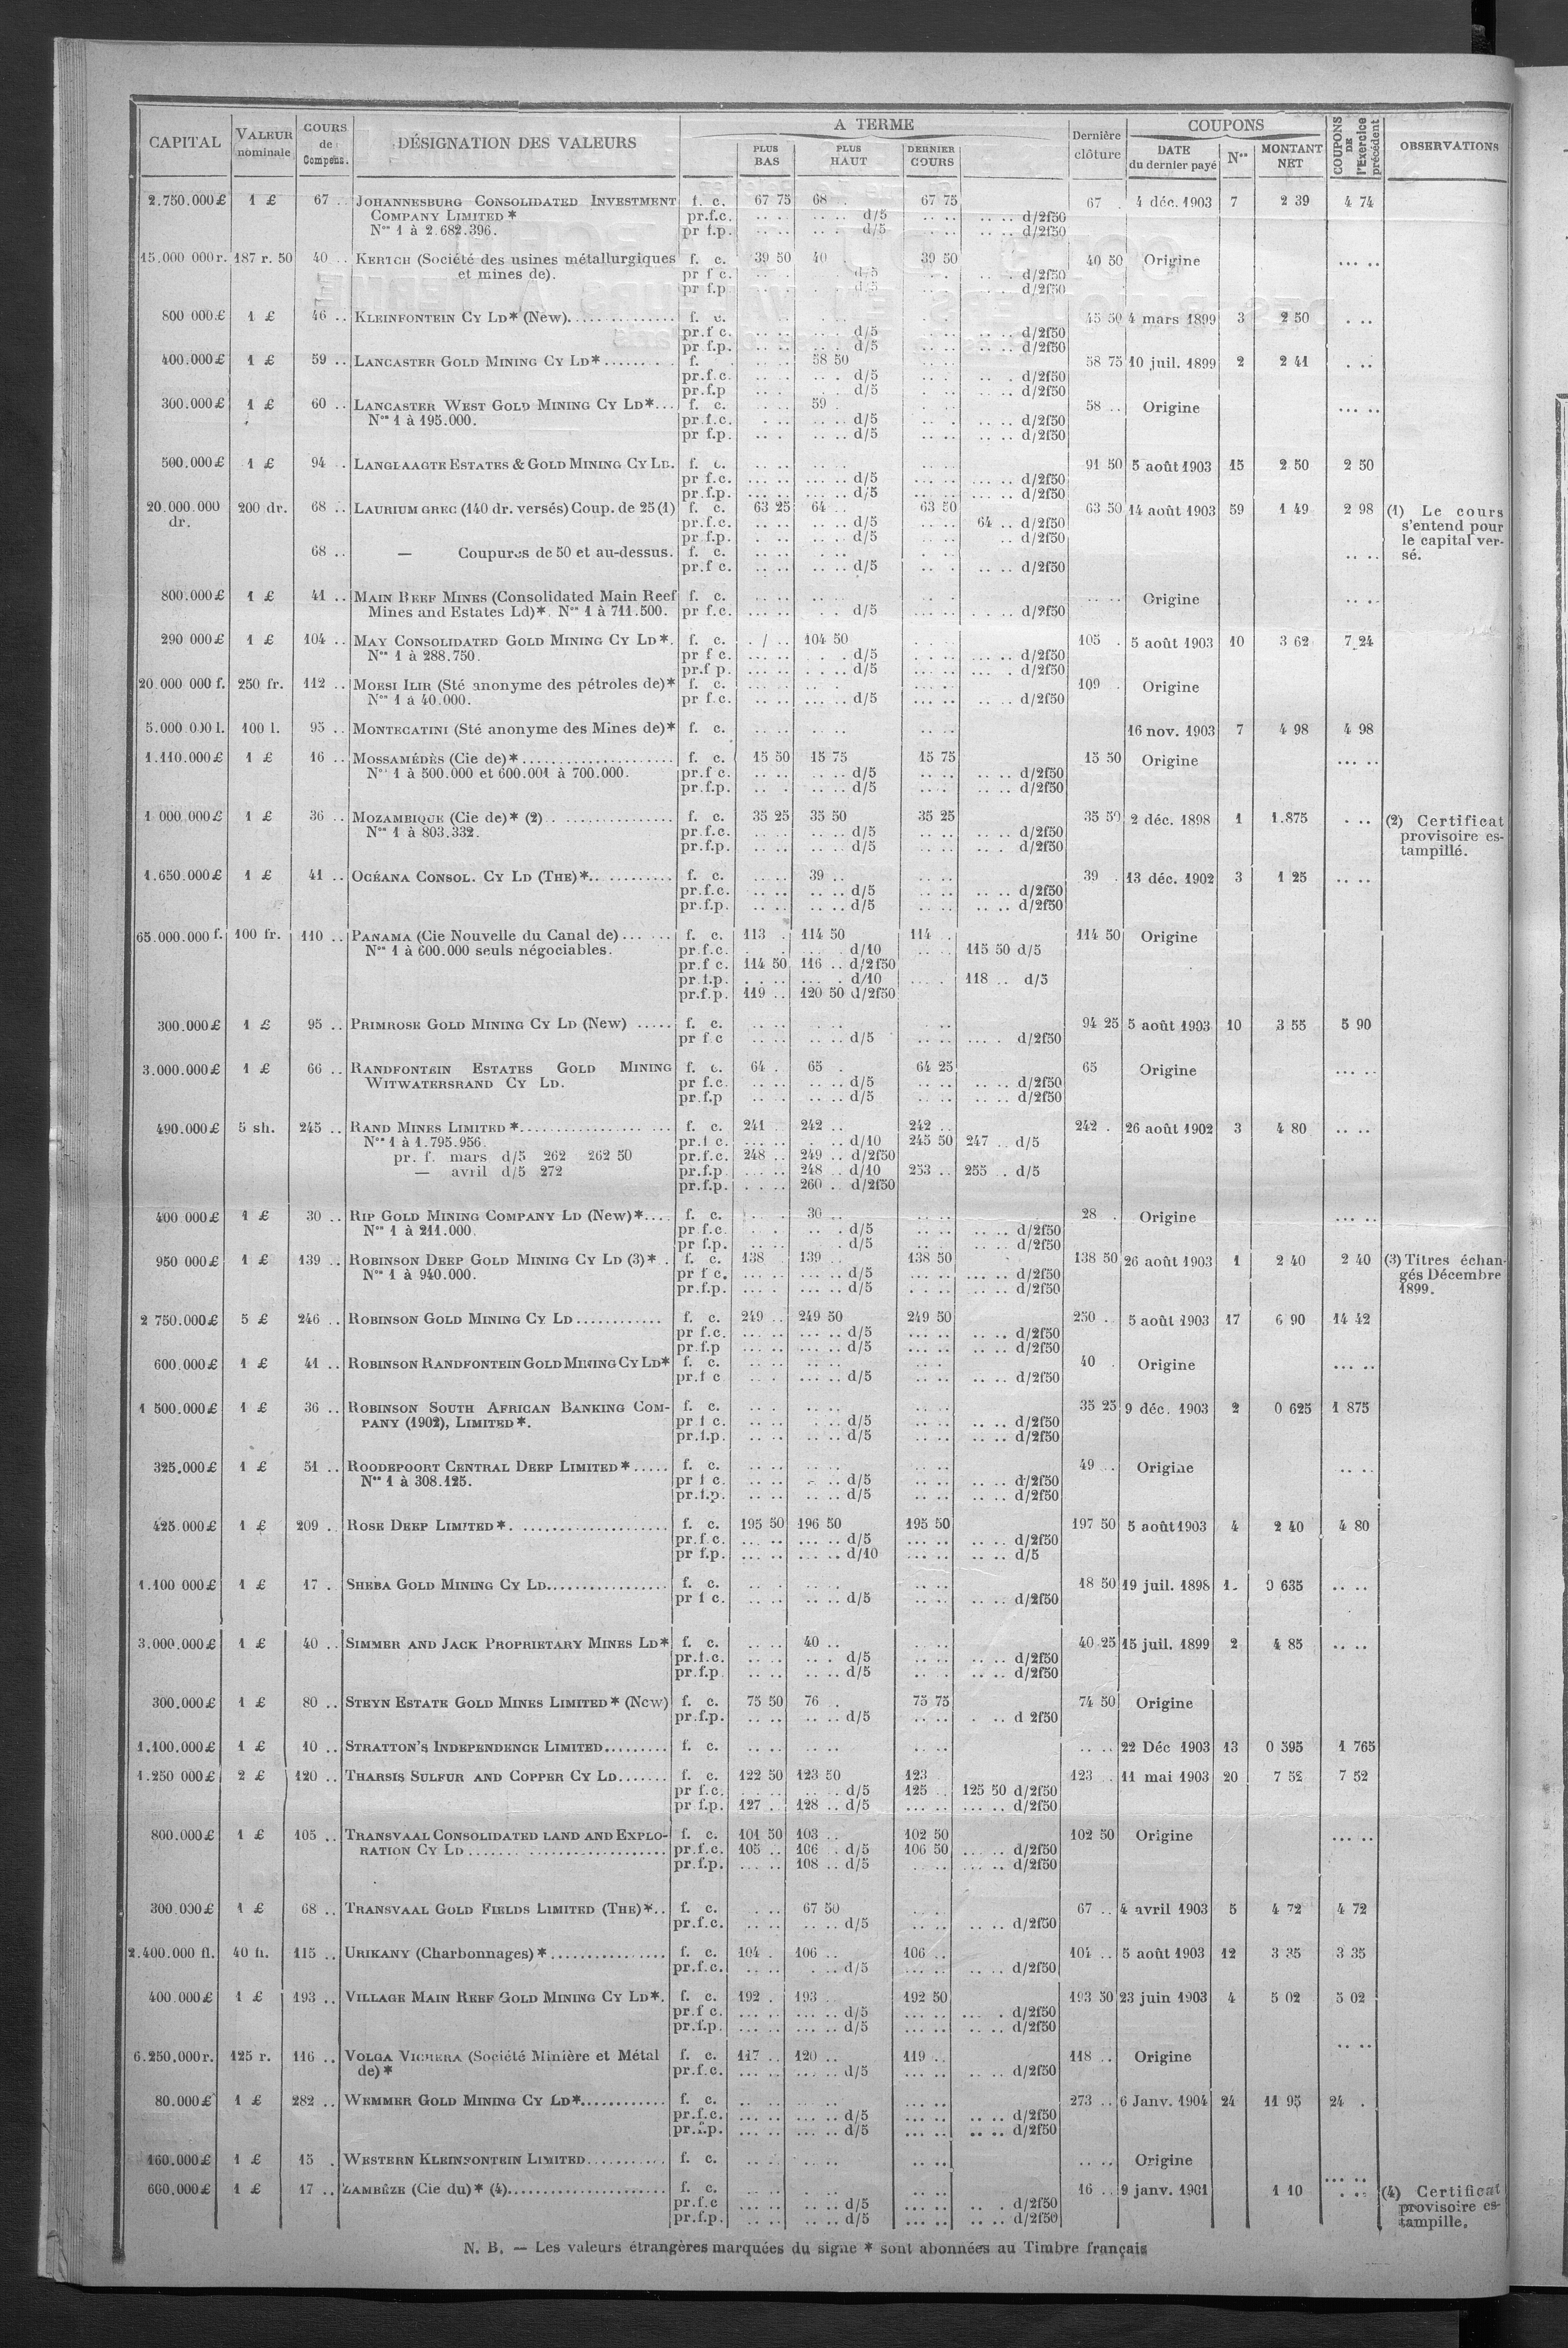 CAPITAL VALEUR nominale COURS de Compens. DÉSIGNATION DES VALEURS A TERME Dernière clôture COUPONS COUPONS DE l'Exercice précédent OBSERVATIONS
PLUS BAS PLUS HAUT DERNIER COURS DATE du dernier payé Nos MONTANT NET
2.750.000£ 1 £ 67 .. JOHANNESBURG CONSOLIDATED INVESTMENT f. c. 67 75 68 . 67 75 67 . 4 déc. 1903 7 2 39 4 74
COMPANY LIMITED * pr.f.c. .. . .. .. d/5 .. .. .. .. d/2f50
Nos 1 à 2.682.396. pr f.p. .. .. .. . d/5 .. .. .. .. d/2f50
15.000 000r. 187 r. 50 40 .. KERTCH (Société des usines métallurgiques f. c. 39 50 40 . 39 50 40 50 Origine ... ..
et mines de). pr f c. d/5 d/2f50
pr f.p d/5 d/2f50
800 000£ 1 £ 46 .. KLEINFONTEIN CY LD* (New)............... f. c. 45 50 4 mars 1899 3 2 50 . ..
pr.f c. d/5 d/2f50
pr f.p. d/5 d/2f50
400.000£ 1 £ 59 .. LANCASTER GOLD MINING CY LD*........ f. 58 50 58 75 10 juil. 1899 2 2 41 . ..
pr.f.c. d/5 d/2f50
pr.f.p d/5 d/2f50
300.000£ 1 £ 60 .. LANCASTER WEST GOLD MINING CY LD*... f. c. 59 58 .. Origine ... ..
Nos 1 à 195.000. pr.f.c. d/5 d/2f50
pr f.p. d/5 d/2f50
500.000£ 1 £ 94 .. LANGLAAGTE ESTATES & GOLD MINING CY LD. f. c. 91 50 5 août 1903 15 2 50 2 50
pr f.c. d/5 d/2f50
pr.f.p. d/5 d/2f50
20.000.000 200 dr. 68 .. LAURIUM GREC (140 dr. versés) Coup. de 25 (1) f. c. 63 25 64 .. 63 50 63 50 14 août 1903 59 1 49 2 98 (1) Le cours
dr. pr.f.c. d/5 64 .. d/2f50 s'entend pour
pr f.p. d/5 d/2f50 le capital ver-
68 .. — Coupures de 50 et au-dessus. f. c. .. .. sé.
pr.f c. d/5 d/2f50
800.000£ 1 £ 41 .. MAIN REEF MINES (Consolidated Main Reef f. c. Origine .. ..
Mines and Estates Ld)*. Nos 1 à 711.500. pr f.c. d/5 d/2f50
290 000£ 1 £ 104 .. MAY CONSOLIDATED GOLD MINING CY LD*. f. c. 104 50 105 . 5 août 1903 10 3 62 7 24
Nos 1 à 288.750. pr f c. d/5 d/2f50
pr.f p. d/5 d/2f50
20.000 000 f. 250 fr. 112 .. MORSI ILIR (Sté anonyme des pétroles de)* f. c. 109 . Origine
Nos 1 à 40.000. pr f.c. d/5 d/2f50
5.000 000 l. 100 l. 95 .. MONTECATINI (Sté anonyme des Mines de)* f. c. 16 nov. 1903 7 4 98 4 98
1.110.000£ 1 £ 16 .. MOSSAMÉDÈS (Cie de)*.................... f. c. 15 50 15 75 15 75 15 50 Origine ... ..
Nos 1 à 500.000 et 600.001 à 700.000. pr.f c. d/5 d/2f50
pr.f.p. d/5 d/2f50
1 000.000£ 1 £ 36 .. MOZAMBIQUE (Cie de)* (2) ................ f. c. 35 25 35 50 35 25 35 50 2 déc. 1898 1 1.875 . .. (2) Certificat
Nos 1 à 803.332. pr.f.c. d/5 d/2f50 provisoire es-
pr.f.p. d/5 d/2f50 tampillé.
1.650.000£ 1 £ 41 .. OCÉANA CONSOL. CY LD (THE)*........... f. c. 39 .. 39 . 13 déc. 1902 3 1 25 .. ..
pr.f.c. d/5 d/2f50
pr.f.p. d/5 d/2f50
65.000.000 f. 100 fr. 110 .. PANAMA (Cie Nouvelle du Canal de)...... f. c. 113 . 114 50 114 . 114 50 Origine
Nos 1 à 600.000 seuls négociables. pr.f.c. d/10 115 50 d/5
pr.f c. 114 50 116 .. d/2f50
pr.f.p. d/10 118 .. d/5
pr.f.p. 119 .. 120 50 d/2f50
300.000£ 1 £ 95 .. PRIMROSE GOLD MINING CY LD (New) ..... f. c. 94 25 5 août 1903 10 3 55 5 90
pr f c d/5 d/2f50
3.000.000£ 1 £ 66 .. RANDFONTEIN ESTATES GOLD MINING f. c. 64 . 65 . 64 25 65 Origine ... ..
WITWATERSRAND CY LD. pr f.c. d/5 d/2f50
pr.f.p d/5 d/2f50
490.000£ 5 sh. 245 .. RAND MINES LIMITED *.................... f. c. 241 .. 242 .. 242 .. 242 . 26 août 1902 3 4 80 .. ..
Nos 1 à 1.795.956. pr.f c. d/10 245 50 247 .. d/5
pr. f. mars d/5 262 262 50 pr.f.c. 248 .. 249 .. d/2f50
— avril d/5 272 pr.f.p. 248 .. d/10 253 .. 255 .. d/5
pr.f.p. 260 .. d/2f50
400 000£ 1 £ 30 .. RIP GOLD MINING COMPANY LD (New)*.... f. c. 30 .. 28 . Origine ... ..
Nos 1 à 211.000. pr f.c. d/5 d/2f50
pr f.p. d/5 d/2f50
950 000£ 1 £ 139 .. ROBINSON DEEP GOLD MINING CY LD (3)*. f. c. 138 139 .. 138 50 138 50 26 août 1903 1 2 40 2 40 (3) Titres échan-
Nos 1 à 940.000. pr f c. d/5 d/2f50 gés Décembre
pr.f.p. d/5 d/2f50 1899.
2 750.000£ 5 £ 246 .. ROBINSON GOLD MINING CY LD............ f. c. 249 .. 249 50 249 50 250 . 5 août 1903 17 6 90 14 42
pr f.c. d/5 d/2f50
pr.f.p d/5 d/2f50
600.000£ 1 £ 41 .. ROBINSON RANDFONTEIN GOLD MINING CY LD* f. c. 40 . Origine ... ..
pr.f c d/5 d/2f50
1 500.000£ 1 £ 36 .. ROBINSON SOUTH AFRICAN BANKING COM- f. c. 35 25 9 déc. 1903 2 0 625 1 875
PANY (1902), LIMITED*. pr f c. d/5 d/2f50
pr.f.p. d/5 d/2f50
325.000£ 1 £ 51 .. ROODEPOORT CENTRAL DEEP LIMITED*..... f. c. 49 .. Origine .. ..
Nos 1 à 308.125. pr f c. d/5 d/2f50
pr.f.p. d/5 d/2f50
425.000£ 1 £ 209 . ROSE DEEP LIMITED*. .................... f. c. 195 50 196 50 195 50 197 50 5 août 1903 4 2 40 4 80
pr.f.c. d/5 d/2f50
pr f.p. d/10 d/5
1.100 000£ 1 £ 17 . SHEBA GOLD MINING CY LD................ f. c. 18 50 19 juil. 1898 1. 0 635 .. ..
pr f c. d/5 d/2f50
3.000.000£ 1 £ 40 .. SIMMER AND JACK PROPRIETARY MINES LD* f. c. 40 .. 40 25 15 juil. 1899 2 4 85 .. ..
pr.f.c. d/5 d/2f50
pr.f.p d/5 d/2f50
300.000£ 1 £ 80 .. STEYN ESTATE GOLD MINES LIMITED* (New) f. c. 75 50 76 . 75 75 74 50 Origine
pr.f.p. d/5 d 2f50
1.100.000£ 1 £ 10 .. STRATTON'S INDEPENDENCE LIMITED......... f. c. 22 Déc 1903 13 0 595 1 765
1.250 000£ 2 £ 120 .. THARSIS SULFUR AND COPPER CY LD....... f. c. 122 50 123 50 123 123 .. 11 mai 1903 20 7 52 7 52
pr f.c. d/5 125 .. 125 50 d/2f50
pr f.p. 127 . 128 .. d/5 d/2f50
800.000£ 1 £ 105 .. TRANSVAAL CONSOLIDATED LAND AND EXPLO- f. c. 101 50 103 .. 102 50 102 50 Origine ... ..
RATION CY LD ............................ pr.f.c. 105 .. 106 . d/5 106 50 d/2f50
pr.f.p. 108 .. d/5 d/2f50
300.000£ 1 £ 68 .. TRANSVAAL GOLD FIELDS LIMITED (THE)*.. f. c. 67 50 67 .. 4 avril 1903 5 4 72 4 72
pr.f.c. d/5 d/2f50
2.400.000 fl. 40 fl. 115 .. URIKANY (Charbonnages)*................ f. c. 104 . 106 .. 106 .. 104 .. 5 août 1903 12 3 35 3 35
pr.f.c. d/5 d/2f50
400.000£ 1 £ 193 .. VILLAGE MAIN REEF GOLD MINING CY LD*. f. c. 192 . 193 . 192 50 193 50 23 juin 1903 4 5 02 5 02
pr.f c. d/5 d/2f50
pr.f.p. d/5 d/2f50
6.250.000r. 125 r. 116 .. VOLGA VICHERA (Société Minière et Métal f. c. 117 .. 120 .. 119 .. 118 .. Origine .. ..
de)* pr.f.c. d/5 d/2f50
80.000£ 1 £ 282 .. WEMMER GOLD MINING CY LD*............ f. c. 273 .. 6 Janv. 1904 24 11 95 24 .
pr.f.c. d/5 d/2f50
pr.f.p. d/5 d/2f50
160.000£ 1 £ 15 . WESTERN KLEINFONTEIN LIMITED........... f. c. Origine ... ..
600.000£ 1 £ 17 .. ZAMBÈZE (Cie du)* (4)...................... f. c. 16 .. 9 janv. 1901 1 10 . .. (4) Certificat
pr.f.c d/5 d/2f50 provisoire es-
pr.f.p. d/5 d/2f50 tampille.
N. B. — Les valeurs étrangères marquées du signe * sont abonnées au Timbre français